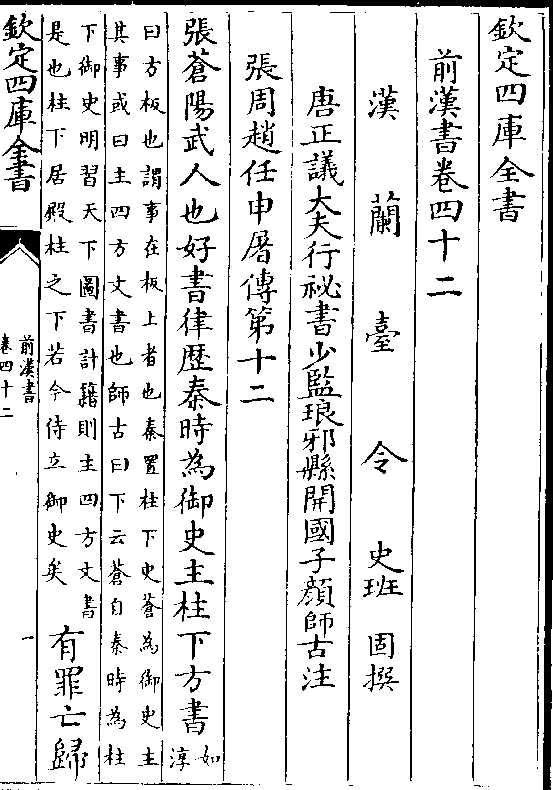 欽定四庫全書
前漢書卷四十二
漢蘭臺令史班固撰
唐正議大夫行祕書少監琅邪縣開國子顔師古注
張周趙任申屠傳第十二
張蒼陽武人也好書律歴秦時為御史主柱下方書如淳
曰方板也謂事在板上者也秦置柱下史蒼為御史主
其事或曰主四方文書也師古曰下云蒼自秦時為柱
下御史明習天下圖書計籍則主四方文書
是也柱下居殿柱之下若今侍立御史矣
有罪亡歸
欽定四庫全書
前漢書
卷四十二
一